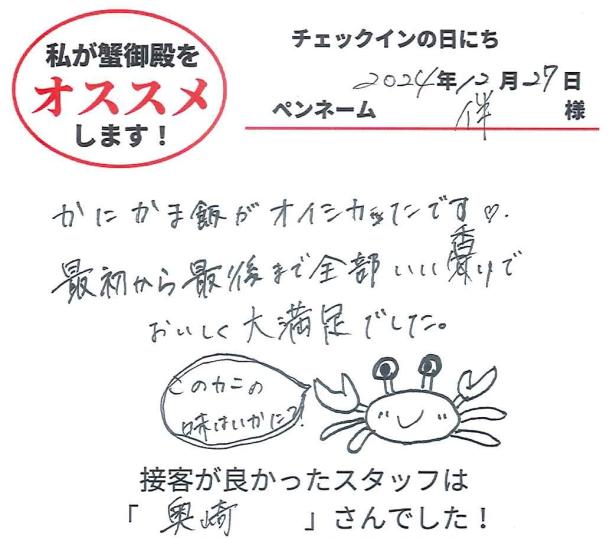 私が蟹御殿を
オススメ
します！
チェックインの日にち
2024年12月27日
ペンネーム 伴 様
かにかま飯がオイシカッたです♡.
最初から最後まで全部いい香りで
おいしく大満足でした。
このカニの
味はいかに?!
接客が良かったスタッフは
「 奥崎 」さんでした！